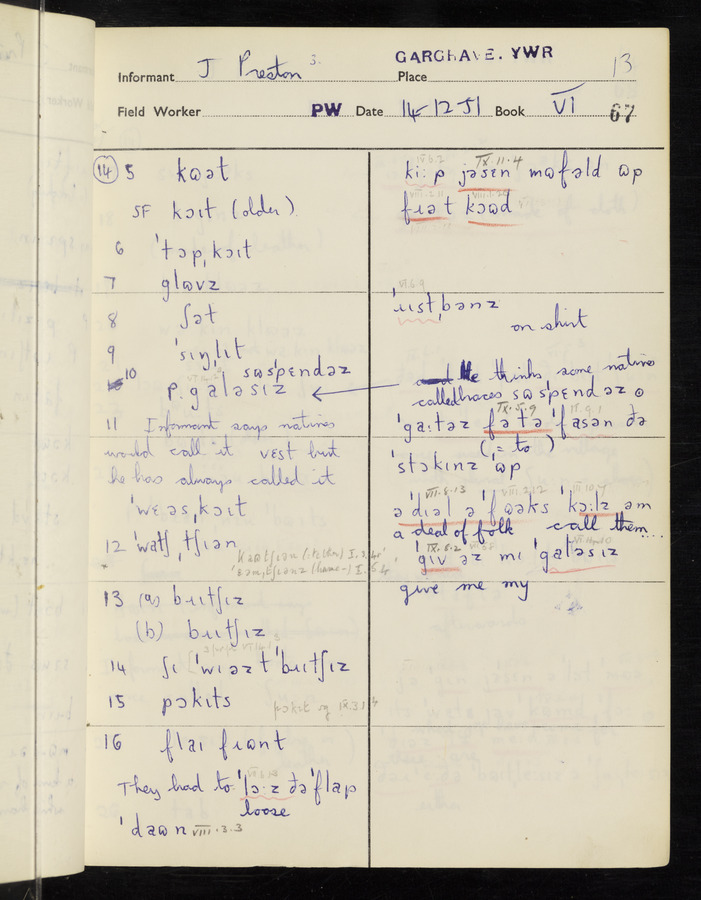 GARGRAVE. YWR
Informant J Preston 3. Place 13
Field Worker PW Date 14 12 51 Book VI 67
14 5 kɷət
SF kɔɪt (older)
6 ˈtɔpˌkɔɪt
7 glɷvz
8 ʃət
9 ˈsɪŋˌlɪt
10 sɷspɛndəz
p. galəsɪz
11 Informant says natives
would call it VEST but
he has always called it
ˈwɛəsˌkɔɪt
12 ˈwatʃˌtʃɪən
13 (a) bɹɪtʃɪz
(b) bɹɪtʃɪz
14 ʃɪ ˈwɪəz t ˈbɹɪtʃɪz
15 pɔkɪts
pɔkɪt sg IX.3.1
16 flaɪ fɹɷnt
They had to ˈlɔ·z ðə ˈflap
loose
ˈdaɷn VIII.3.3
IX.11.4
ki:p jəsɛn mɷfəld ɷp
fɹət kɔɷd
VI.6.9
ˈɹɪstˌbənz
on shirt
He thinks some natives
called braces sɷsˈpɛndəz
IX.5.9
ˈga:təz fə tə ˈfasən ðə
(= to)
ˈstɔkɪnz ɷp
VII.8.13 VIII.2.12
ə ˈdɪəl ə ˈfɷəks kɔ:lz əm
a deal of folk call them...
IX.8.2
ˈgɪv əz mɪ ˈgaləsɪz
give me my